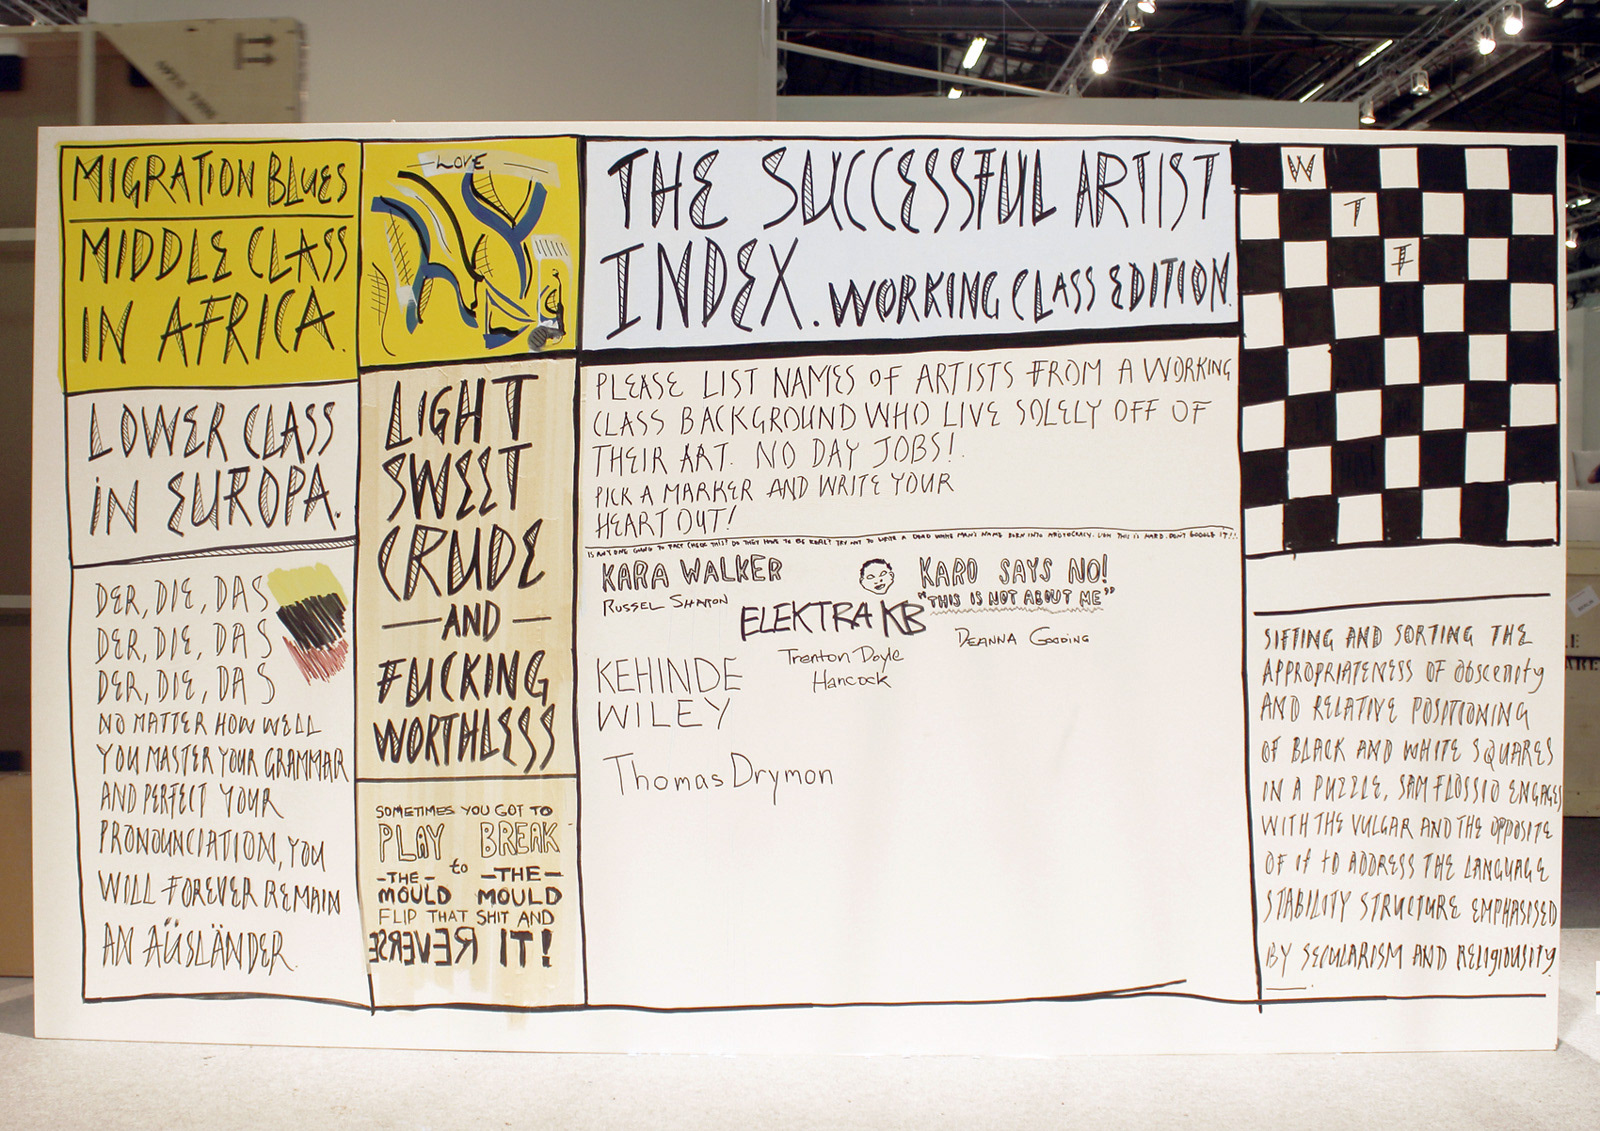 MIGRATION BLUES
MIDDLE CLASS
IN AFRICA.
LOWER CLASS
IN EUROPA.
DER, DIE, DAS
DER, DIE, DAS
DER, DIE, DAS
NO MATTER HOW WELL
YOU MASTER YOUR GRAMMAR
AND PERFECT YOUR
PRONOUNCIATION, YOU
WILL FOREVER REMAIN
AN AÜSLÄNDER.
LOVE
LIGHT
SWEET
CRUDE
— AND —
FUCKING
WORTHLESS
SOMETIMES YOU GOT TO
PLAY to BREAK
-THE- -THE-
MOULD MOULD
FLIP THAT SHIT AND
REVERSE IT!
THE SUCCESSFUL ARTIST
INDEX. WORKING CLASS EDITION.
PLEASE LIST NAMES OF ARTISTS FROM A WORKING
CLASS BACKGROUND WHO LIVE SOLELY OFF OF
THEIR ART. NO DAY JOBS!
PICK A MARKER AND WRITE YOUR
HEART OUT!
IS ANYONE GOING TO FACT CHECK THIS? DO THEY HAVE TO BE REAL? TRY NOT TO WRITE A DEAD WHITE MAN'S NAME BORN INTO ARISTOCRACY. THIS IS HARD. DON'T GOOGLE IT!!
KARA WALKER
RUSSEL
KARO SAYS NO!
"THIS IS NOT ABOUT ME"
ELEKTRA KB
DEANNA GOODING
Trenton Doyle
Hancock
KEHINDE
WILEY
Thomas Drymon
W
T
F
SIFTING AND SORTING THE
APPROPRIATENESS OF obscenity
AND RELATIVE POSITIONING
OF BLACK AND WHITE SQUARES
IN A PUZZLE, SAM FLOSSIO ENGAGES
WITH THE VULGAR AND THE OPPOSITE
OF it TO ADDRESS THE LANGUAGE
STABILITY STRUCTURE EMPHASISED
BY SECULARISM AND RELIGIOUSITY